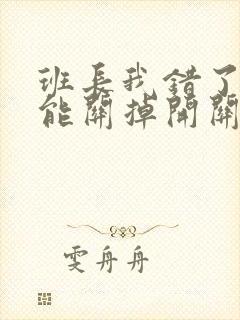 班长我错了
能關掉開關
雯舟舟